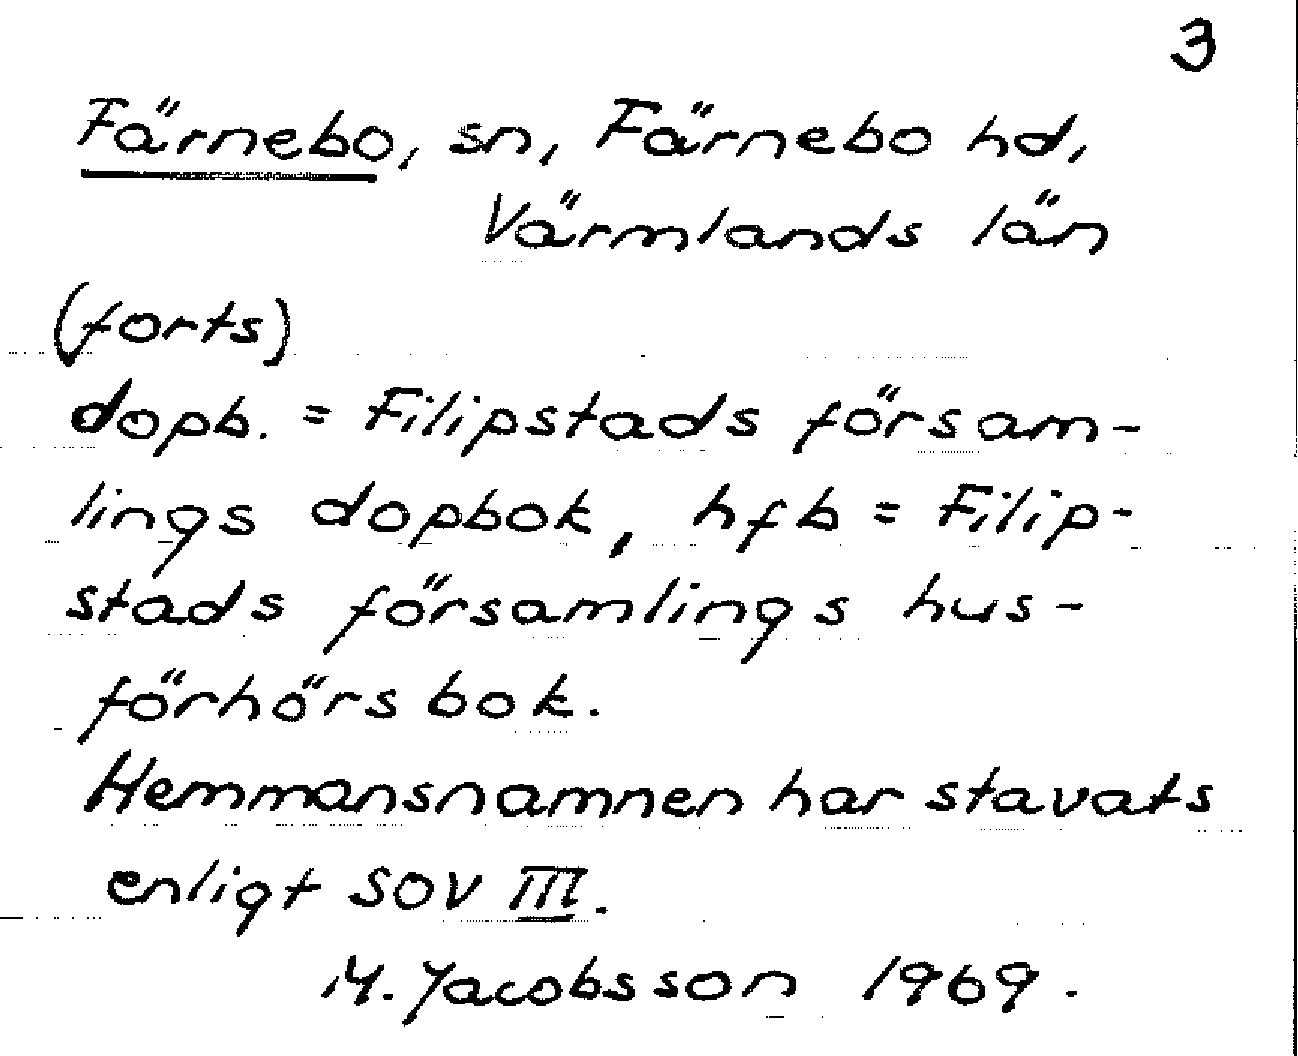 3
Färnebo, sn, Färnebo hd,
Värmlands län
(forts)
dopb. = Filipstads försam-
lings dopbok, hfb = Filip-
stads församlings hus-
förhörsbok.
Hemmansnamnen har stavats
enligt SOV III.
M. Jacobsson 1969.